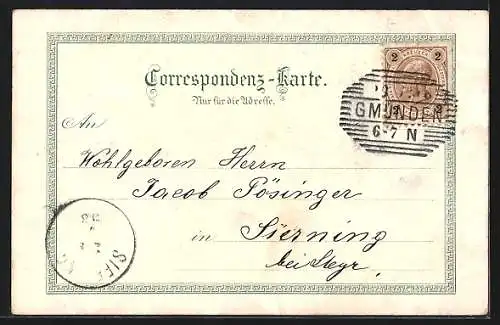 2 2
Correspondenz-Karte.
Nur für die Adresse.
GMUNDEN
6-7 N
An
Wohlgeboren Herrn
Jacob Pösinger
in Sierning
bei Steyr.
98